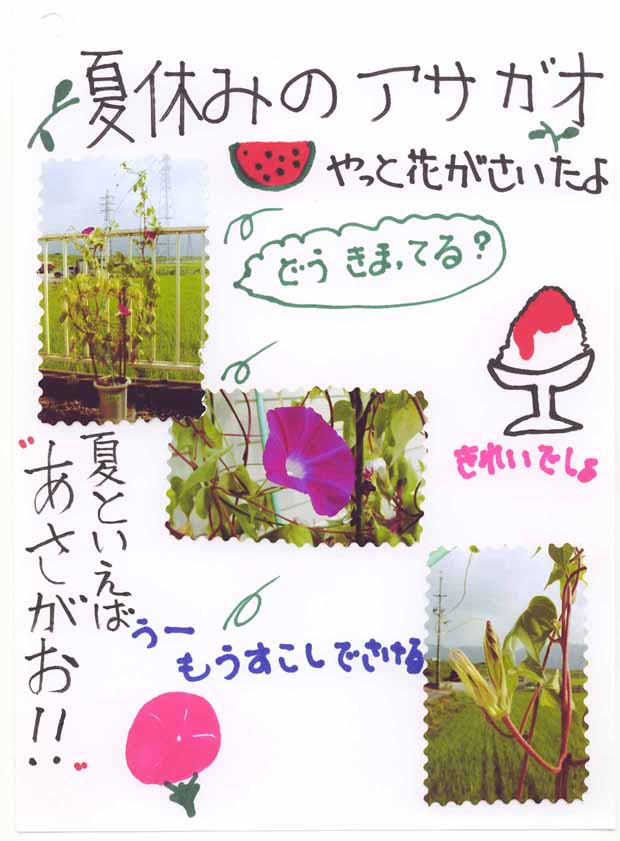 夏休みのアサガオ
やっと花がさいたよ
どう きまってる?
きれいでしょ
夏といえば
"あさがお!!"
うー
もうすこしでさける